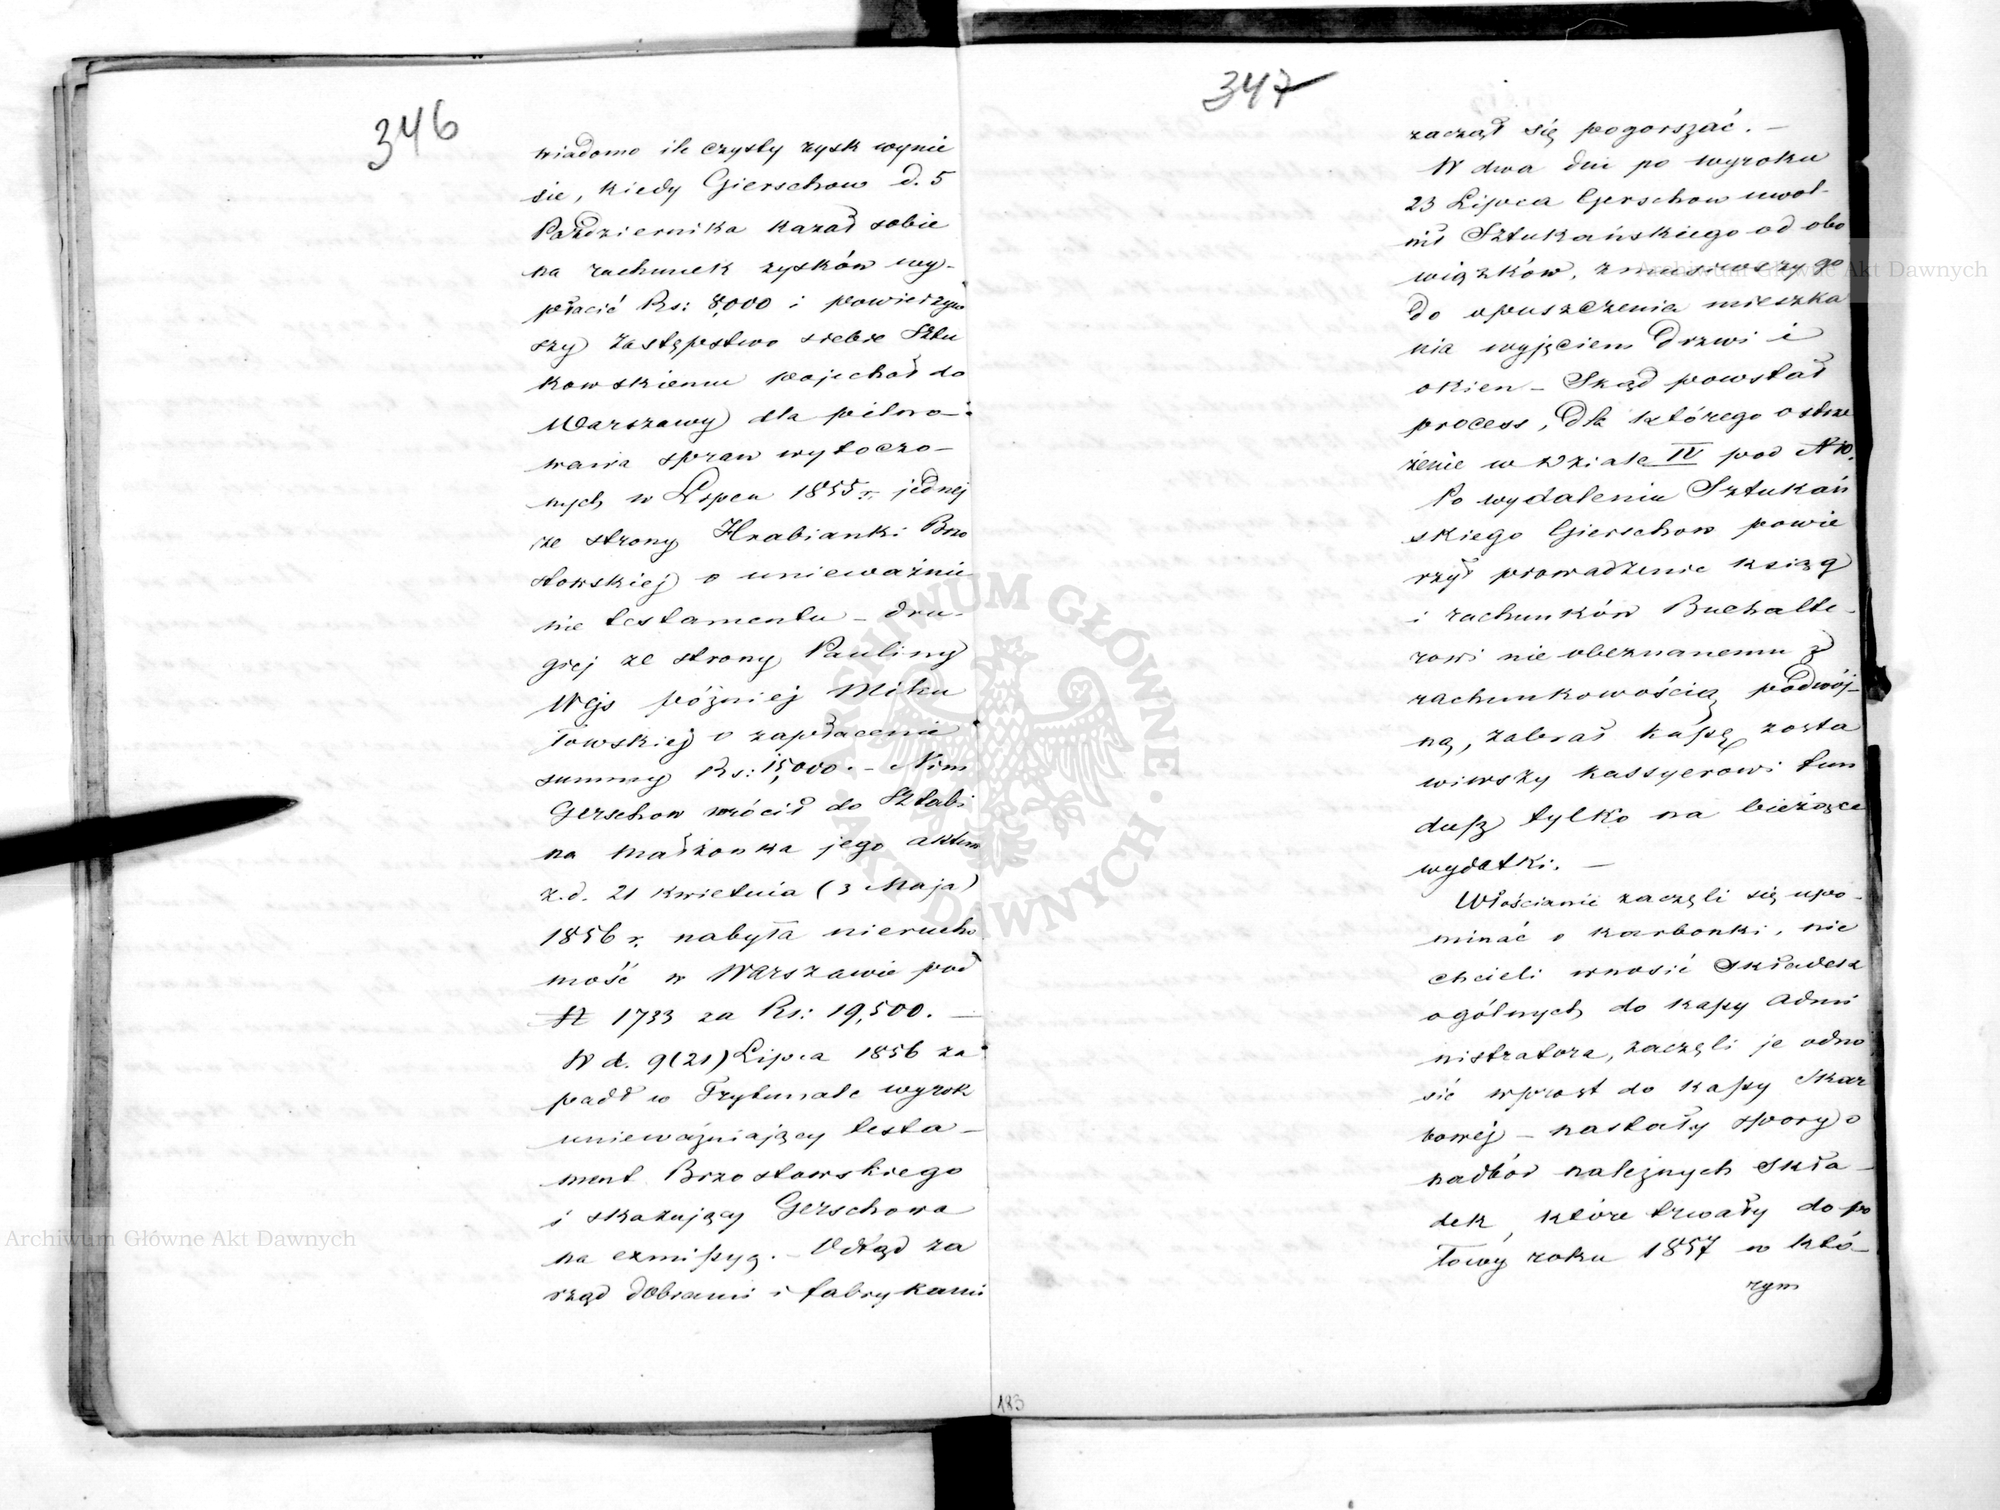 346
wiadomo ile czysty zysk wynie
sie, kiedy Gierschow d. 5
Października kazał sobie
na rachunek zysków wy-
płacić Rs: 8,000 i powierzyw
szy zastępstwo siebie Sztu
kowskiemu pojechał do
Warszawy dla pilno-
wania spraw wytoczo-
nych w Lipcu 1855 r. jednej
ze strony Hrabianki Brzo
stowskiej o unieważnie
nie testamentu - dru-
giej ze strony Pauliny
Wejs później Miku
łowskiej o zapłacenie
summy Rs: 15,000. - Nim
Gerschow wrócił do Sztabi
na małżonka jego aktem
z.d. 21 kwietnia (3 Maja)
1856 r. nabyła nierucho
mość w Warszawie pod
N 1733 za Rs: 19,500. -
W d. 9(21) Lipca 1856 za
padł w Trybunale wyrok
unieważniający testa-
ment Brzostowskiego
i skazujący Gerschowa
na exmissyą. - Odtąd za
rząd dobrami i fabrykami
347
zaczął się pogorszać. -
W dwa dni po wyroku
23 Lipca Gerschow uwol-
nił Sztukańskiego od obo
wiązków, zmusiwszy go
do opuszczenia mieszka
nia wyjęciem drzwi i
okien - Skąd powstał
process, dla którego ostrze
żenie w Dziale IV pod N 10.
Po wydaleniu Sztukań
skiego Gierschow powie
rzył prowadzenie ksiąg
i rachunków Buchalte-
rowi nie obeznanemu z
rachunkowością podwój-
ną, zabrał kassę, zosta
wiwszy kassyerowi fun
dusz tylko na bieżące
wydatki. -
Włościanie zaczęli się upo-
minać o karbonki, nie
chcieli wnosić składek
ogólnych do kassy Admi
nistratora, zaczęli je odno
sić wprost do kassy Skar
bowéj - nastały spory o
nadbór należnych skła-
dek, które trwały do po
łowy roku 1857 w któ-
rym
183
Archiwum Główne Akt Dawnych
Archiwum Główne Akt Dawnych
ARCHIWUM GŁÓWNE · AKT DAWNYCH ·